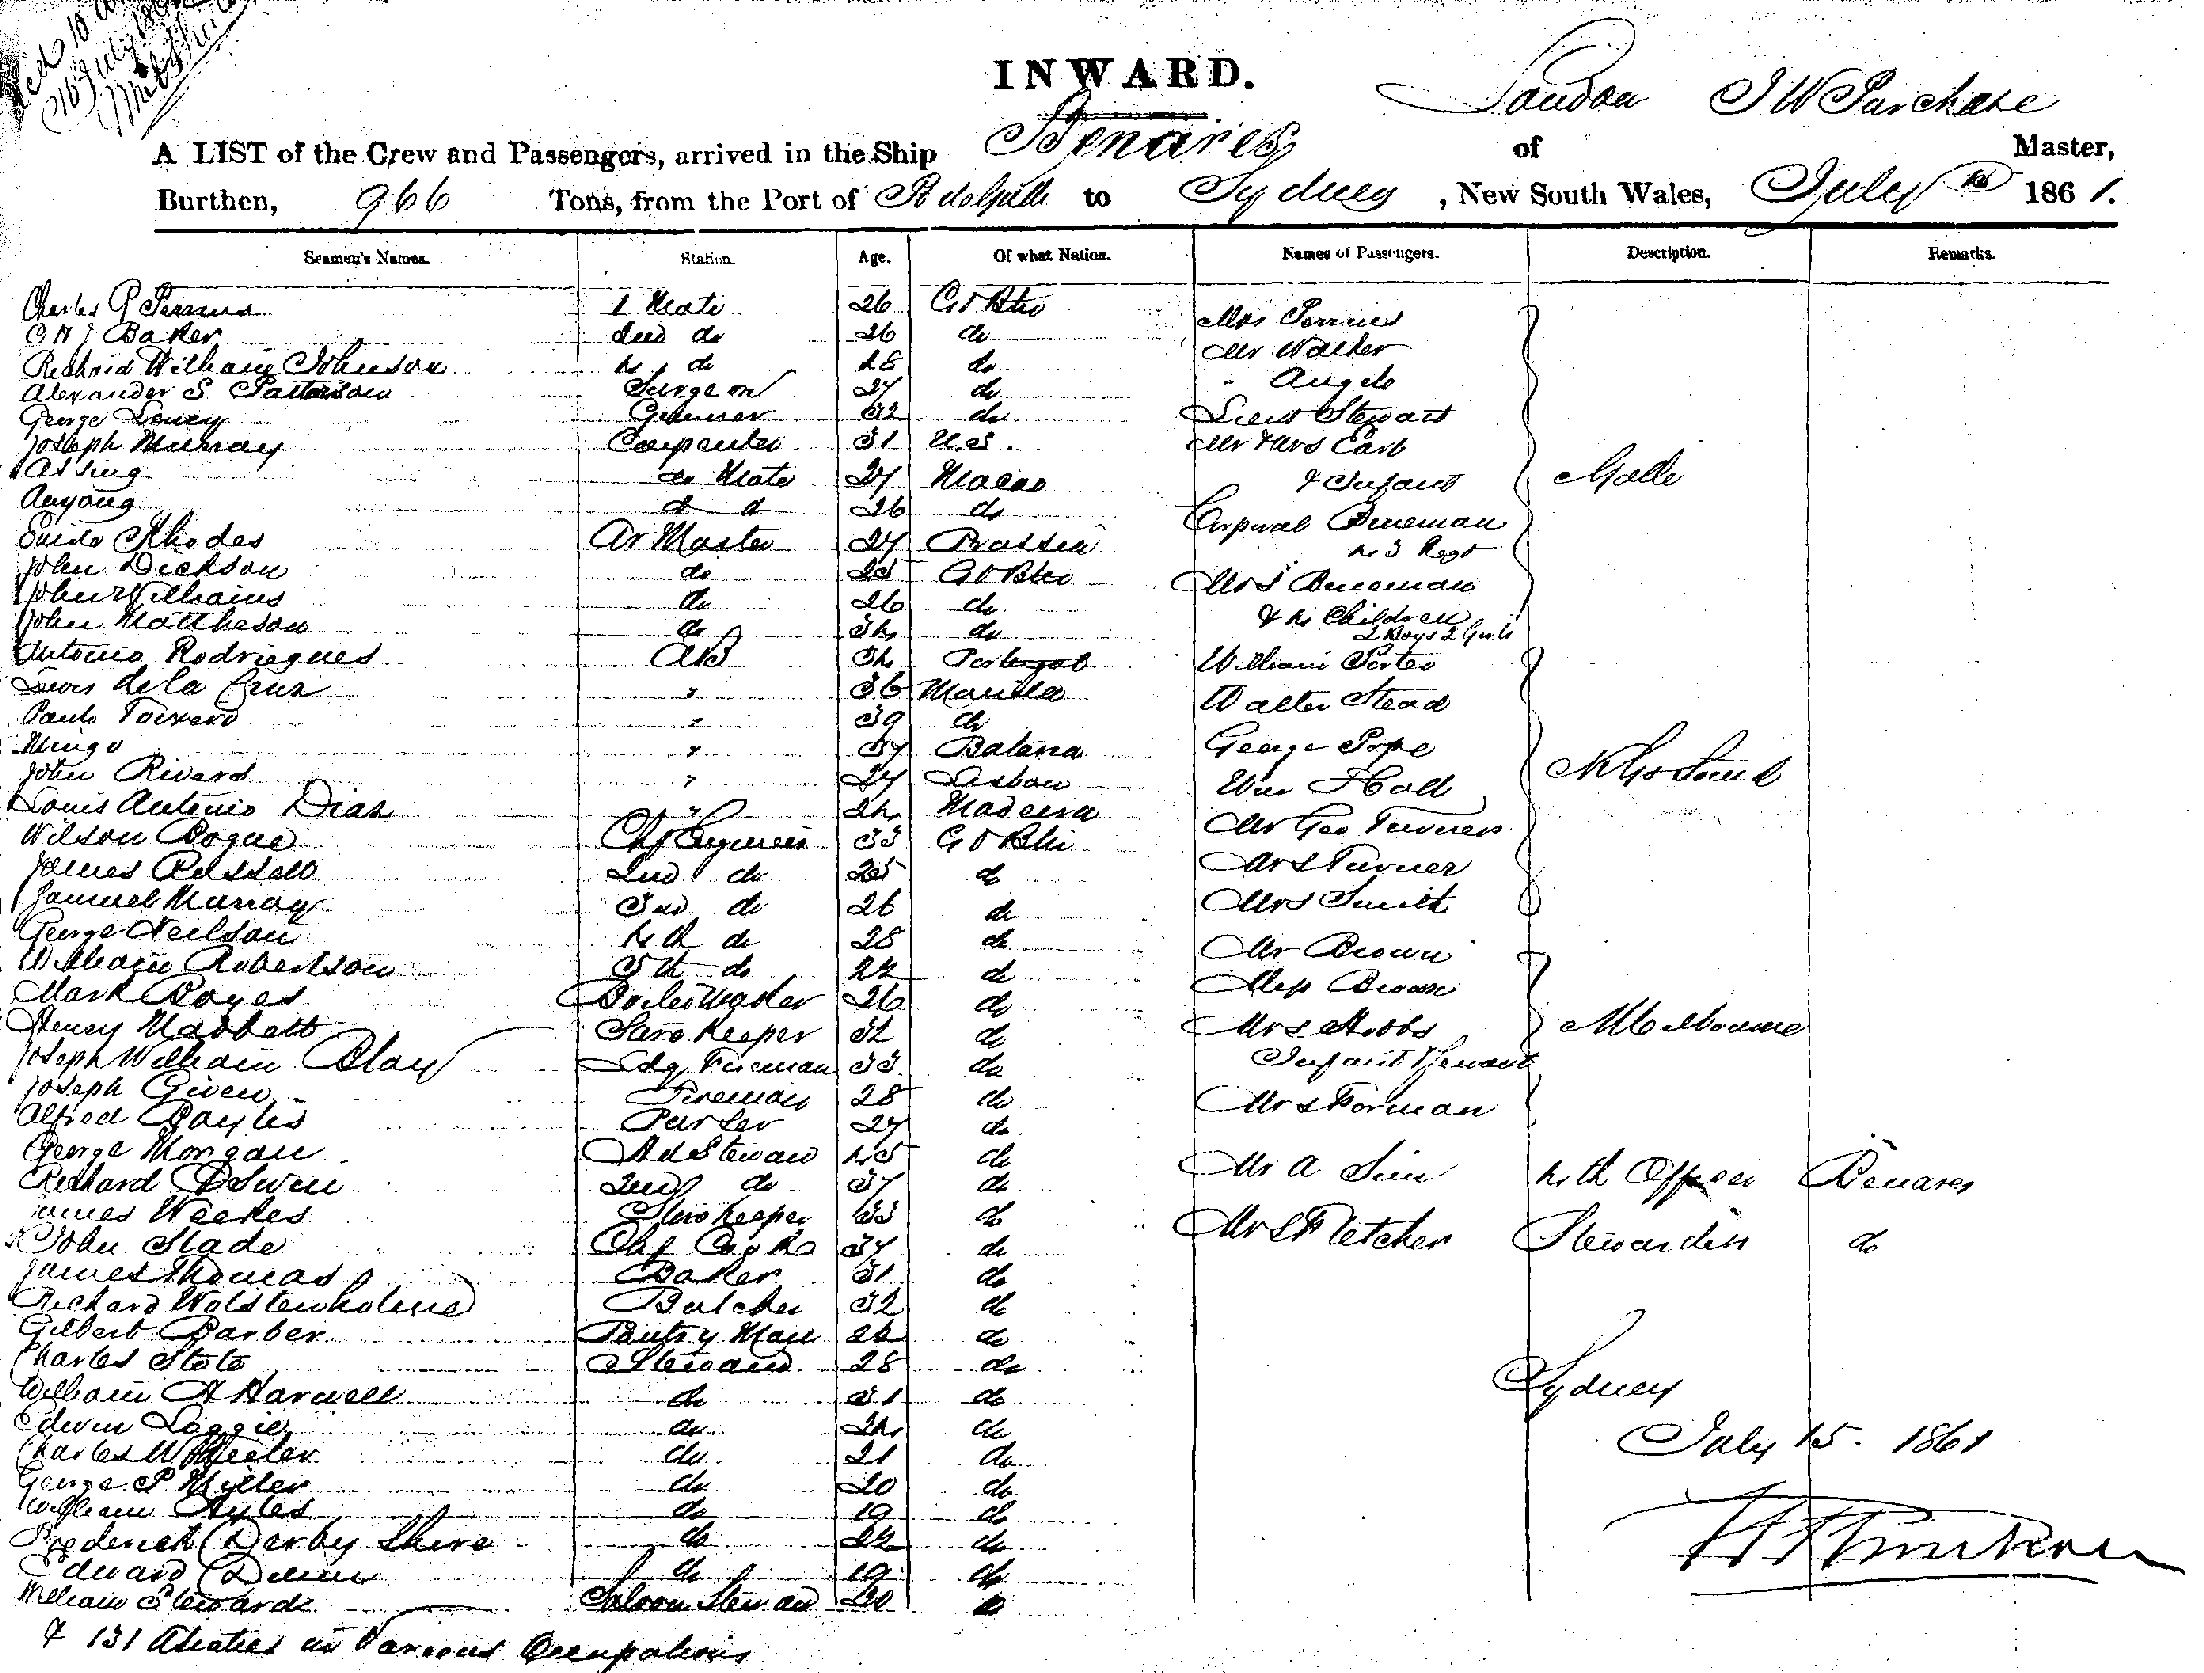 16 July
INWARD.
London J W Purchase
A LIST of the Crew and Passengers, arrived in the Ship Benares of Master,
Burthen, 966 Tons, from the Port of to Sydney, New South Wales, July 1861.
Seamen's Names. Station. Age. Of what Nation. Names of Passengers. Description. Remarks.
Charles P 1 Mate 26 Gt Btn
Baker 2nd do 26 do
Richard William Johnson 4 do 28 do
Alexander S. Patterson Surgeon 27 do
George Gunner 32 do
Joseph Murray Carpenter 31 U.S.
Assing do Mate 27 Macao
Auyong do do 26 do
Guido Rhodes Qr Master 27 Prussia
John Dickson do 25 Gt Btn
John Williams do 26 do
John Matheson do 34 do
Antonio Rodrigues AB 34 Portugal
Lewis de la Cruz " 36 Manilla
Paulo " 39 do
Mingo " 37
John Rivard " 27 Lisbon
Louis Antonio Dias " 24 Madeira
Wilson Bogue Chf Engineer 33 Gt Btn
James Russell 2nd do 25 do
Samuel Murray 3rd do 26 do
George Neilson 4th do 28 do
William Robertson 5th do 22 do
Mark Boyes Boiler Maker 26 do
Henry Store Keeper 32 do
Joseph William Clay Ldg Fireman 33 do
Joseph Given Fireman 28 do
Alfred Purser 27 do
George Morgan Hd Steward 45 do
Richard 2nd do 37 do
James Weekes Storekeeper 33 do
John Slade Chf Cook 37 do
James Thomas Baker 31 do
Richard Wolstenholme Butcher 32 do
Gilbert Barber Pantry Man 22 do
Charles Stote Steward 28 do
William A Harwell do 21 do
Edwin Leggie do 24 do
Charles Wheeler do 21 do
George P Miller do 20 do
William Ayles do 19 do
Frederick Derbyshire do 22 do
Edward do 19 do
William Stewards Saloon Steward 20 do
& 131 Asiatics in Various Occupations
Mrs
Mr Walker
" Angelo
Lieut Stewart
Mr & Mrs Earb
& Infant
Corporal Breneman
Regt
Mrs Breneman
& 4 Children
2 Boys 2 Girls
Galle
William Porter
Walter Stead
George Pope
Wm Hall
Mr Geo Turner
Mrs Turner
Mrs Smith
K Go Sound
Mr Brown
Miss Brown
Mrs Hobbs
Infant & Servant
Mrs Forman
Melbourne
Mr A Sim 4th Officer Benares
Mrs Fletcher Stewardess do
Sydney
July 15. 1861